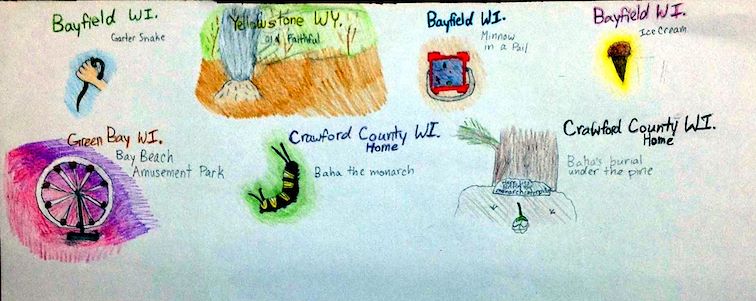 Bayfield WI.
Garter Snake
Yellowstone WY.
Old Faithful
Bayfield WI.
Minnow
in a Pail
Bayfield WI.
Ice Cream
Green Bay WI.
Bay Beach
Amusement Park
Crawford County WI.
Home
Baha the monarch
Crawford County WI.
Home
Baha's burial
under the pine